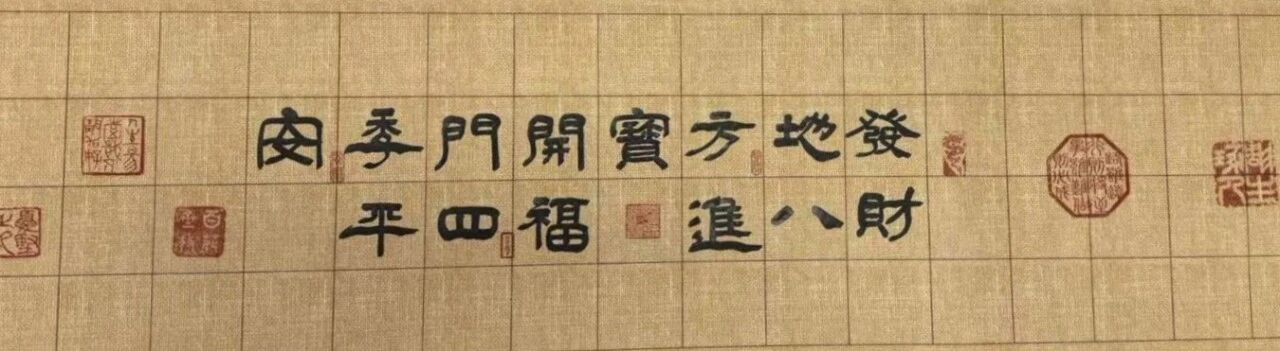 發財
地八
方進
寶
開福
門四
季平
安